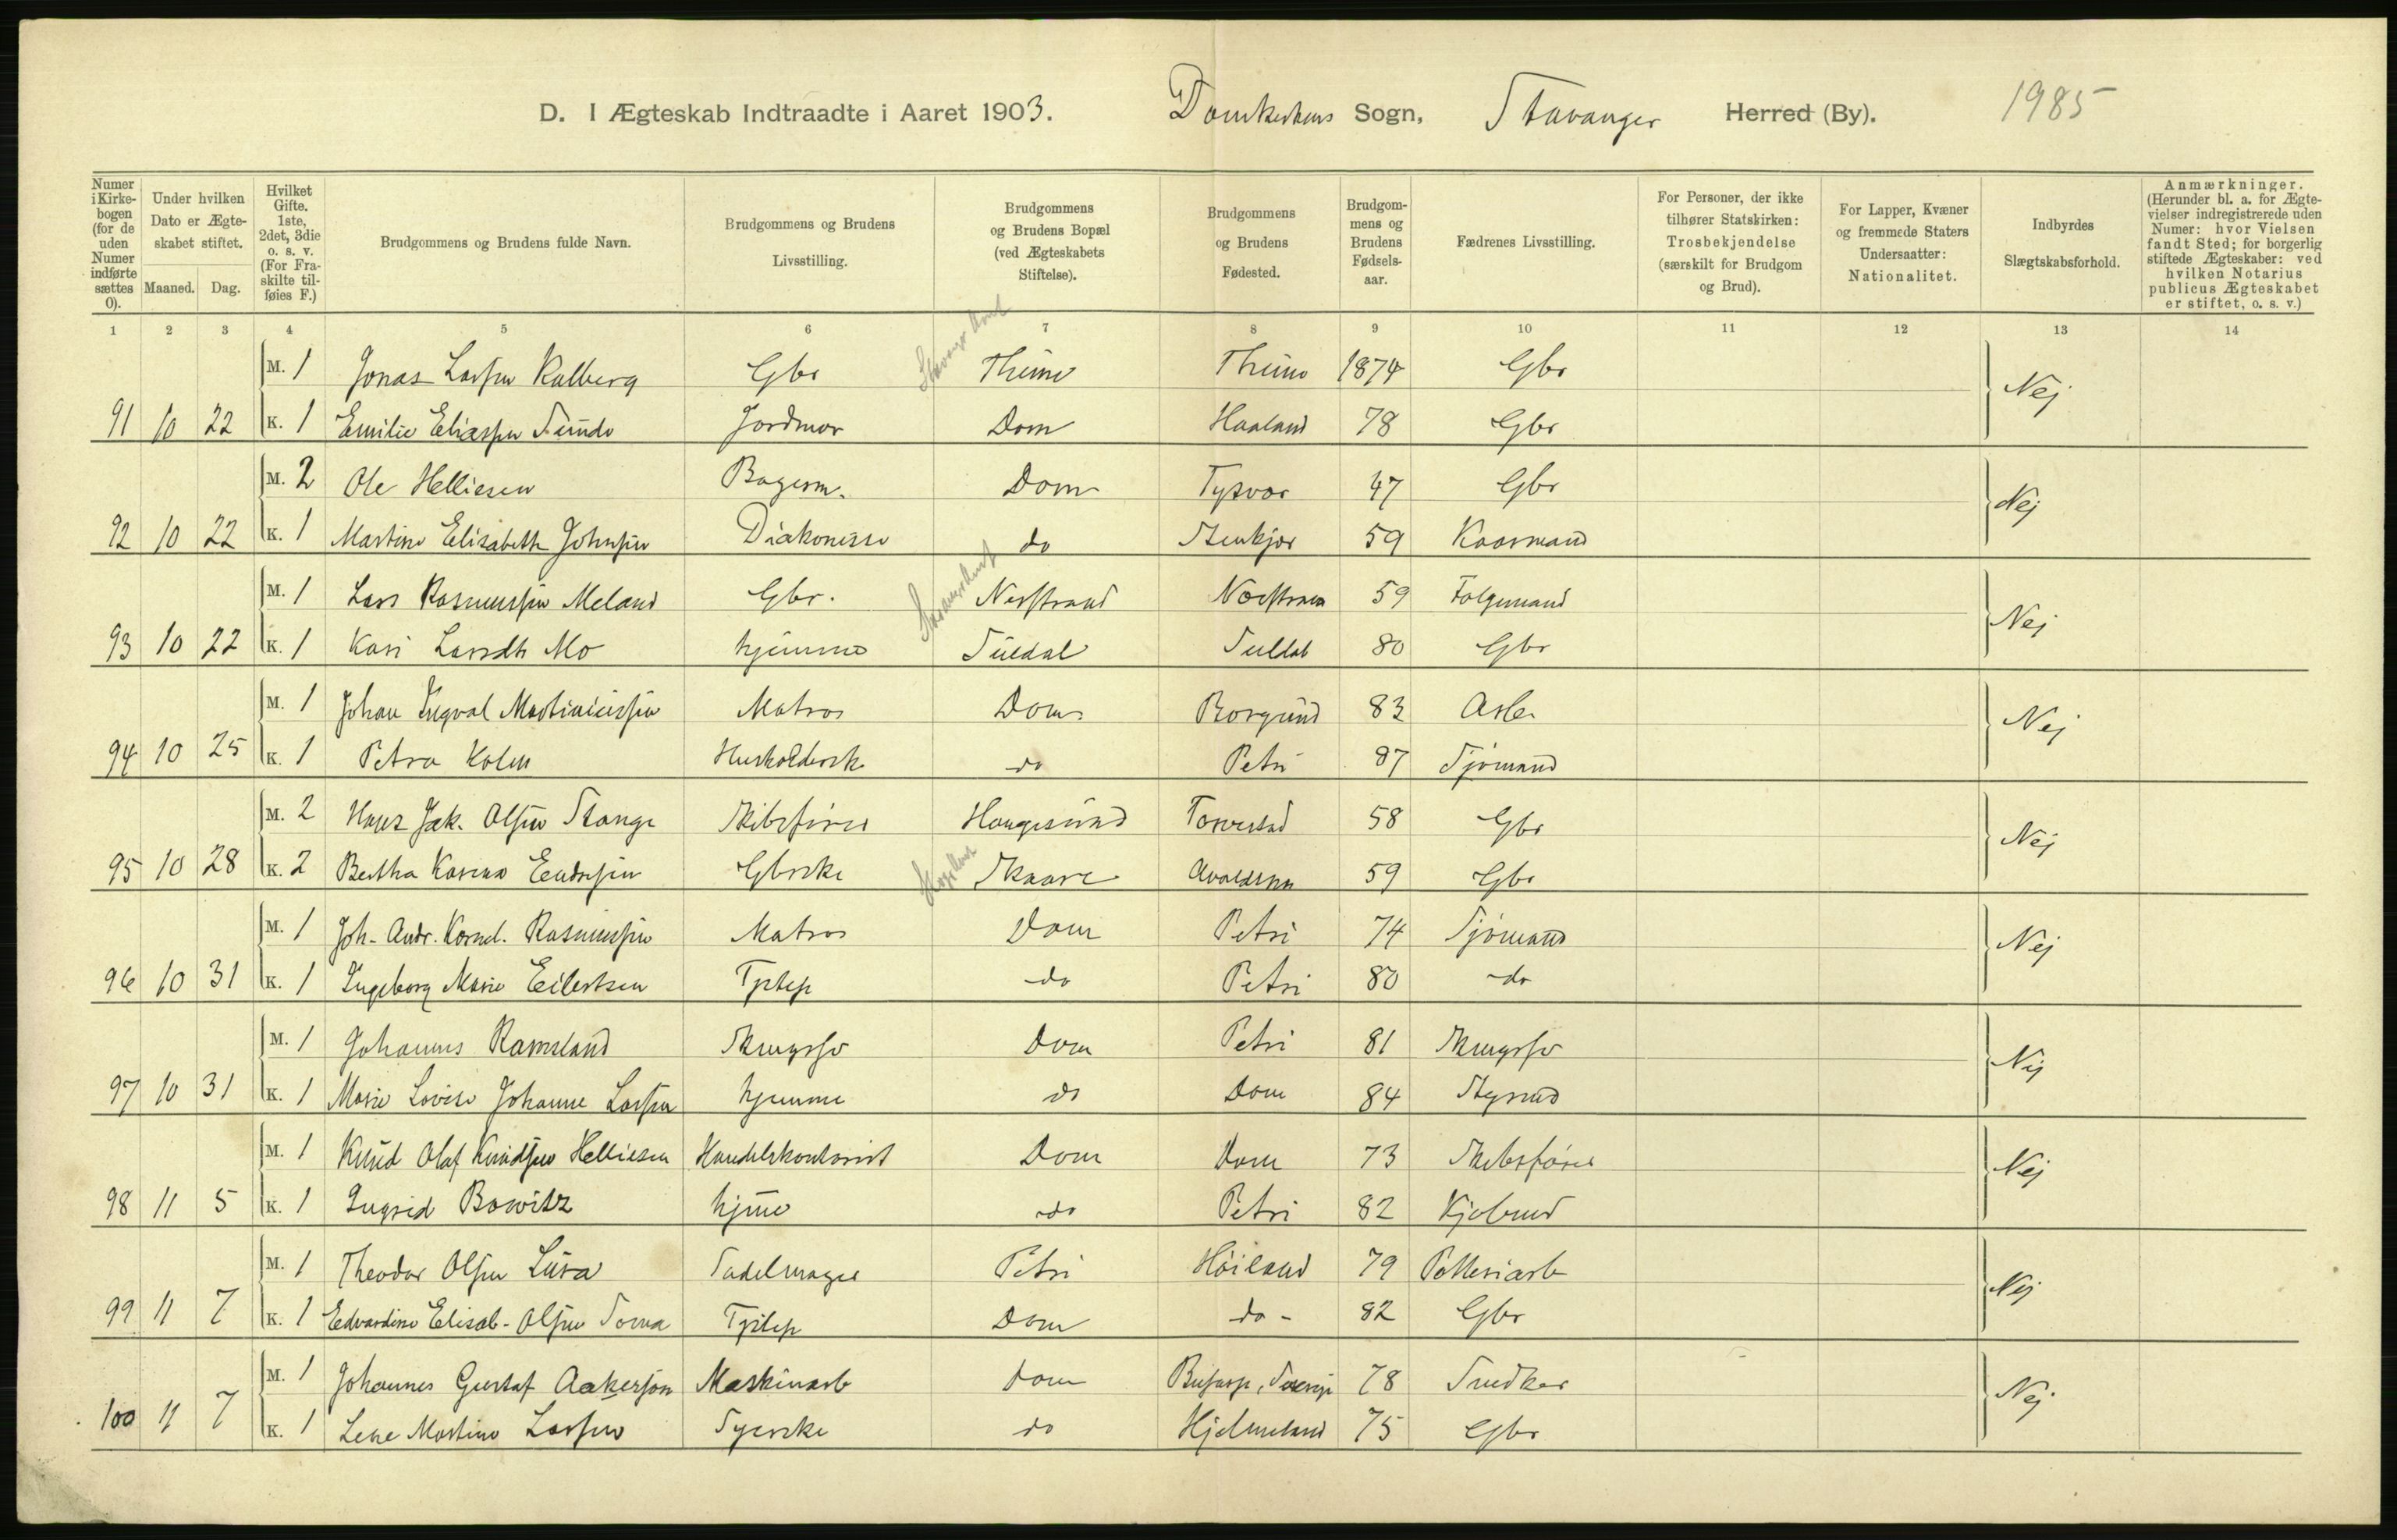 D. I Ægteskab Indtraadte i Aaret 1903. Domkirkens Sogn, Stavanger Herred (By). 1985
Numer i Kirke-bogen (for de uden Numer indførte sættes 0). Under hvilken Dato er Ægte-skabet stiftet. Maaned. Dag. Hvilket Gifte. 1ste, 2det, 3die o. s. v. (For Fra-skilte til-føies F.) Brudgommens og Brudens fulde Navn. Brudgommens og Brudens Livsstilling. Brudgommens og Brudens Bopæl (ved Ægteskabets Stiftelse). Brudgommens og Brudens Fødested. Brudgom-mens og Brudens Fødsels-aar. Fædrenes Livsstilling. For Personer, der ikke tilhører Statskirken: Trosbekjendelse (særskilt for Brudgom og Brud). For Lapper, Kvæner og fremmede Staters Undersaatter: Nationalitet. Indbyrdes Slægtskabsforhold. Anmærkninger. (Herunder bl. a. for Ægte-vielser indregistrerede uden Numer: hvor Vielsen fandt Sted; for borgerlig stiftede Ægteskaber: ved hvilken Notarius publicus Ægteskabet er stiftet, o. s. v.)
1 2 3 4 5 6 7 8 9 10 11 12 13 14
M. 1 Jonas Larsen Kalberg Gbr Thime Thime 1874 Gbr Nej
91 10 22 K. 1 Emilie Eliassen Sunde Jordmor Dom Haaland 78 Gbr
M. 2 Ole Helliesen Bagerm. Dom Tysvær 47 Gbr Nej
92 10 22 K. 1 Martine Elisabeth Johnsen Diakonisse do Stenkjær 59
M. 1 Lars Rasmussen Meland Gbr. Nerstrand 59 Nej
93 10 22 K. 1 Kari Larsdtr Mo hjemme Suldal Suldal 80 Gbr
M. 1 Johan Ingval Matros Dom Borgund 83 Arb. Nej
94 10 25 K. 1 Petra Kolen Husholdersk do Petri 87 Sjømand
M. 2 Hans Jak. Olsen Stange Skibsfører Haugesund Torvestad 58 Gbr Nej
95 10 28 K. 2 Bertha Karina Endresen Gbrske Skaare Avaldsnes 59 Gbr
M. 1 Joh. Andr. Kornel. Rasmussen Matros Dom Petri 74 Sjømand Nej
96 10 31 K. 1 Ingeborg Marie Eilertsen Tjstep do Petri 80 do
M. 1 Johannes Ramsland Dom Petri 81 Nej
97 10 31 K. 1 Marie Lovise Johanne Larsen hjemme do Dom 84 Styrmd
M. 1 Knud Olaf Knudsen Helliesen Handelskontorist Dom Dom 73 Skibsfører Nej
98 11 5 K. 1 Ingrid Bowitz hjme do Petri 82 Kjøbmd
M. 1 Theodor Olsen Lura Sadelmager Petri Høiland 79 Potteriarb Nej
99 11 7 K. 1 Edvardine Elisab. Olsen Soma Tjstep Dom do - 82 Gbr
M. 1 Johannes Gustaf Aakerson Maskinarb Dom 78 Snedker Nej
100 11 7 K. 1 Lene Martine Larsen Syerske do Hjelmeland 75 Gbr